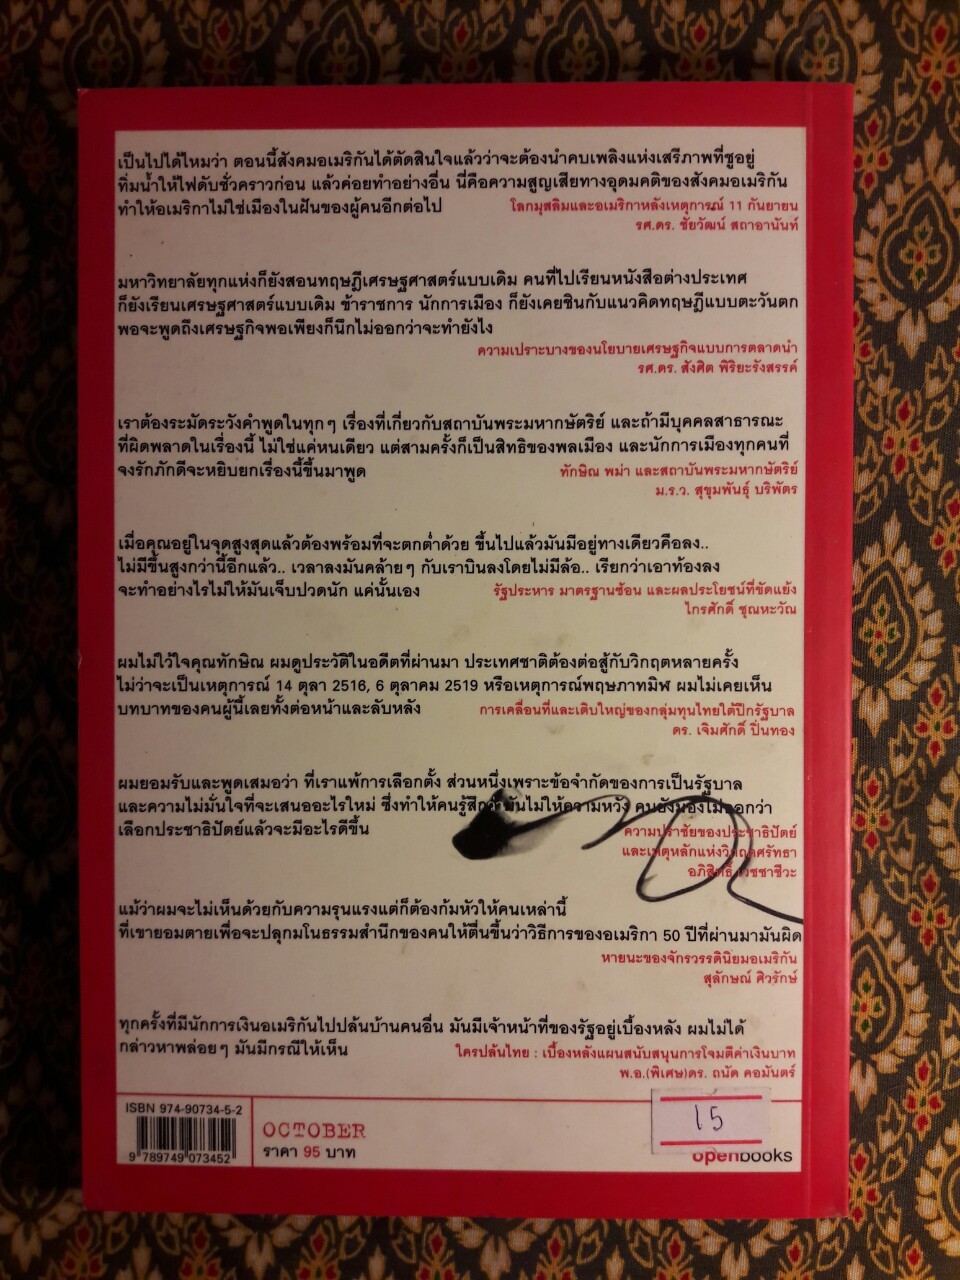 เป็นไปได้ไหมว่า ตอนนี้สังคมอเมริกันได้ตัดสินใจแล้วว่าจะต้องนำคบเพลิงแห่งเสรีภาพที่ชูอยู่
ทิ่มน้ำให้ไฟดับชั่วคราวก่อน แล้วค่อยทำอย่างอื่น นี่คือความสูญเสียทางอุดมคติของสังคมอเมริกัน
ทำให้อเมริกาไม่ใช่เมืองในฝันของผู้คนอีกต่อไป โลกมุสลิมและอเมริกาหลังเหตุการณ์ 11 กันยายน
รศ.ดร. ชัยวัฒน์ สถาอานันท์
มหาวิทยาลัยทุกแห่งก็ยังสอนทฤษฎีเศรษฐศาสตร์แบบเดิม คนที่ไปเรียนหนังสือต่างประเทศ
ก็ยังเรียนเศรษฐศาสตร์แบบเดิม ข้าราชการ นักการเมือง ก็ยังเคยชินกับแนวคิดทฤษฎีแบบตะวันตก
พอจะพูดถึงเศรษฐกิจพอเพียงก็นึกไม่ออกว่าจะทำยังไง
ความเปราะบางของนโยบายเศรษฐกิจแบบการตลาดนำ
รศ.ดร. สังศิต พิริยะรังสรรค์
เราต้องระมัดระวังคำพูดในทุกๆ เรื่องที่เกี่ยวกับสถาบันพระมหากษัตริย์ และถ้ามีบุคคลสาธารณะ
ที่ผิดพลาดในเรื่องนี้ ไม่ใช่แค่หนเดียว แต่สามครั้งก็เป็นสิทธิของพลเมือง และนักการเมืองทุกคนที่
จงรักภักดีจะหยิบยกเรื่องนี้ขึ้นมาพูด ทักษิณ พม่า และสถาบันพระมหากษัตริย์
ม.ร.ว. สุขุมพันธุ์ บริพัตร
เมื่อคุณอยู่ในจุดสูงสุดแล้วต้องพร้อมที่จะตกต่ำด้วย ขึ้นไปแล้วมันมีอยู่ทางเดียวคือลง..
ไม่มีขึ้นสูงกว่านี้อีกแล้ว.. เวลาลงมันคล้ายๆ กับเราบินลงโดยไม่มีล้อ.. เรียกว่าเอาท้องลง
จะทำอย่างไรไม่ให้มันเจ็บปวดนัก แค่นั้นเอง รัฐประหาร มาตรฐานซ้อน และผลประโยชน์ที่ขัดแย้ง
ไกรศักดิ์ ชุณหะวัณ
ผมไม่ไว้ใจคุณทักษิณ ผมดูประวัติในอดีตที่ผ่านมา ประเทศชาติต้องต่อสู้กับวิกฤตหลายครั้ง
ไม่ว่าจะเป็นเหตุการณ์ 14 ตุลา 2516, 6 ตุลาคม 2519 หรือเหตุการณ์พฤษภาทมิฬ ผมไม่เคยเห็น
บทบาทของคนผู้นี้เลยทั้งต่อหน้าและลับหลัง การเคลื่อนที่และเติบใหญ่ของกลุ่มทุนไทยใต้ปีกรัฐบาล
ดร. เจิมศักดิ์ ปิ่นทอง
ผมยอมรับและพูดเสมอว่า ที่เราแพ้การเลือกตั้ง ส่วนหนึ่งเพราะข้อจำกัดของการเป็นรัฐบาล
และความไม่มั่นใจที่จะเสนออะไรใหม่ ซึ่งทำให้คนรู้สึกว่ามันไม่ให้ความหวัง คนยังมองไม่ออกว่า
เลือกประชาธิปัตย์แล้วจะมีอะไรดีขึ้น ความปราชัยของประชาธิปัตย์
และเหตุหลักแห่งวิกฤตศรัทธา
อภิสิทธิ์ เวชชาชีวะ
แม้ว่าผมจะไม่เห็นด้วยกับความรุนแรงแต่ก็ต้องก้มหัวให้คนเหล่านี้
ที่เขายอมตายเพื่อจะปลุกมโนธรรมสำนึกของคนให้ตื่นขึ้นว่าวิธีการของอเมริกา 50 ปีที่ผ่านมามันผิด
หายนะของจักรวรรดินิยมอเมริกัน
สุลักษณ์ ศิวรักษ์
ทุกครั้งที่มีนักการเงินอเมริกันไปปล้นบ้านคนอื่น มันมีเจ้าหน้าที่ของรัฐอยู่เบื้องหลัง ผมไม่ได้
กล่าวหาพล่อยๆ มันมีกรณีให้เห็น ใครปล้นไทย : เบื้องหลังแผนสนับสนุนการโจมตีค่าเงินบาท
พ.อ.(พิเศษ)ดร. ถนัด คอมันตร์
ISBN 974-90734-5-2
9 789749 073452
OCTOBER
ราคา 95 บาท
15
openbooks